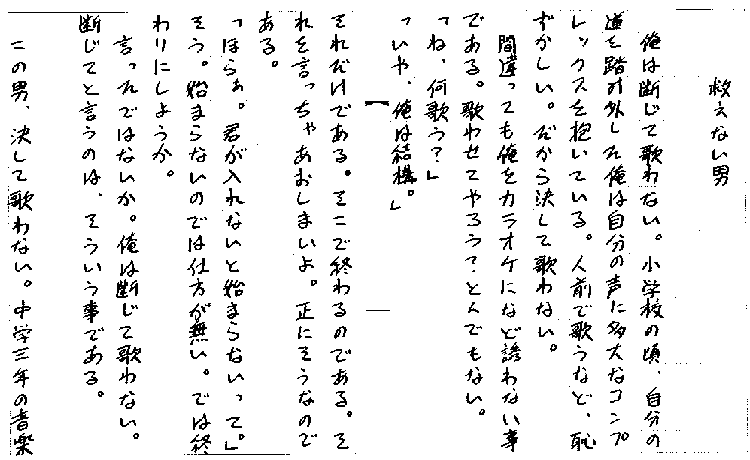 救えない男
俺は断じて歌わない。小学校の頃、自分の
道を踏み外した俺は自分の声に多大なコンプ
レックスを抱いている。人前で歌うなど、恥
ずかしい。だから決して歌わない。
間違っても俺をカラオケになど誘わない事
である。歌わせてやろう?とんでもない。
「ね、何歌う?」
「いや、俺は結構。」
それだけである。そこで終わるのである。そ
れを言っちゃあおしまいよ。正にそうなので
ある。
「ほらぁ。君が入れないと始まらないって。」
そう。始まらないのでは仕方が無い。では終
わりにしようか。
言ったではないか。俺は断じて歌わない。
断じてと言うのは、そういう事である。
この男、決して歌わない。中学三年の音楽